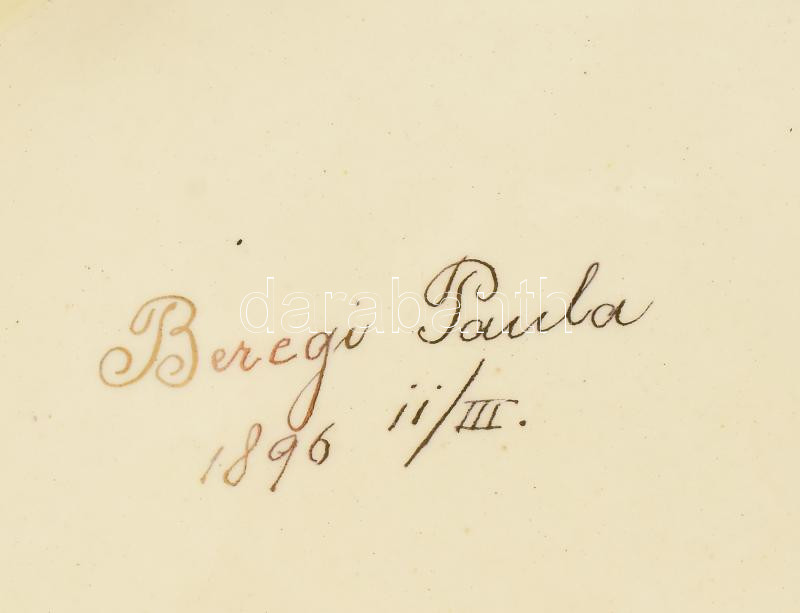 Beregi Paula
1896 ii/III.
darabanth